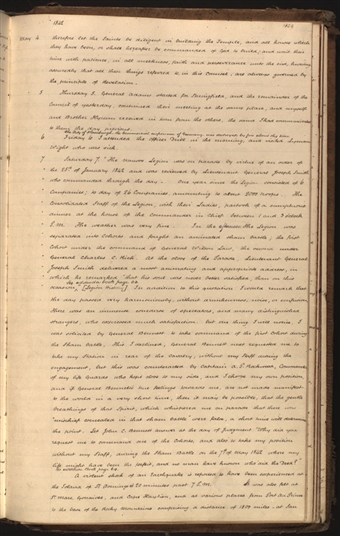 1842
May 4 therefore let the Saints be diligent in building the Temple, and all houses which
they have been, or shall hereafter be commanded of God to build; and wait their
time with patience, in all meekness, faith and perseverance unto the end, knowing
assuredly that all these things referred to in this Council, are always governed by
the principle of Revelation.
5 Thursday 5. General Adams started for Springfield, and the remainder of the
Council of yesterday, continued their meeting at the same place, and myself
and Brother Hyrum received in turn from the others, the same I had communicated
to them the day previous.
6 Friday 6. I attended the officer drill in the morning, and visited Lyman
Wight who was sick.
7 Saturday 7. The Nauvoo Legion was on parade by virtue of an order of
the 25th of January 1842 and was reviewed by Lieutenant General Joseph Smith
who commanded through the day. One year since the Legion consisted of 6
Companies; to day of 26 Companies amounting to about 2000 troops. The
Consolidated Staff of the Legion, with their Ladies, partook of a sumptuous
dinner at the house of the Commander in Chief between 1 and 3 o'clock
P.M. The weather was very fine. In the afternoon the Legion was
separated into Cohorts and fought an animated sham battle; the first
Cohort under the command of General Wilson Law, the second under
General Charles C. Rich. At the close of the Parade Lieutenant General
Joseph Smith delivered a most animating and appropriate address, in
which he remarked "that his soul was never better satisfied than on this
occasion." In addition to this quotation I would remark that
the day passed very harmoniously, without drunkenness, noise, or confusion.
There was an immense concourse of spectators, and many distinguished
strangers, who expressed much satisfaction. But one thing I will notice. I
was solicited by General Bennett to take command of the first Cohort during
the Sham battle; this I declined, General Bennett next requested me to
take my station in rear of the Cavalry, without my Staff during the
engagement, but this was counteracted by Captain A. P. Rockwood, Commander
of my life Guards, who kept close to my side, and I chose my own position,
and if General Bennett's true feelings towards me, are not made manifest
to the world in a very short time, then it may be possible, that the gentle
breathings of that Spirit, which whispered me on parade that there was
"mischief concealed in that sham battle" were false, a short time will determine
the point. Let John C. Bennett answer at the day of judgment "Why did you
request me to command one of the Cohorts, and also to take my position
without my Staff, during the Sham Battle on the 7th of May 1842 where my
life might have been the forfeit, and no man have known who did the deed."
A violent shock of an Earthquake is reported to have been experienced at
the Island of St Domingo at 20 minutes past 5 P.M.